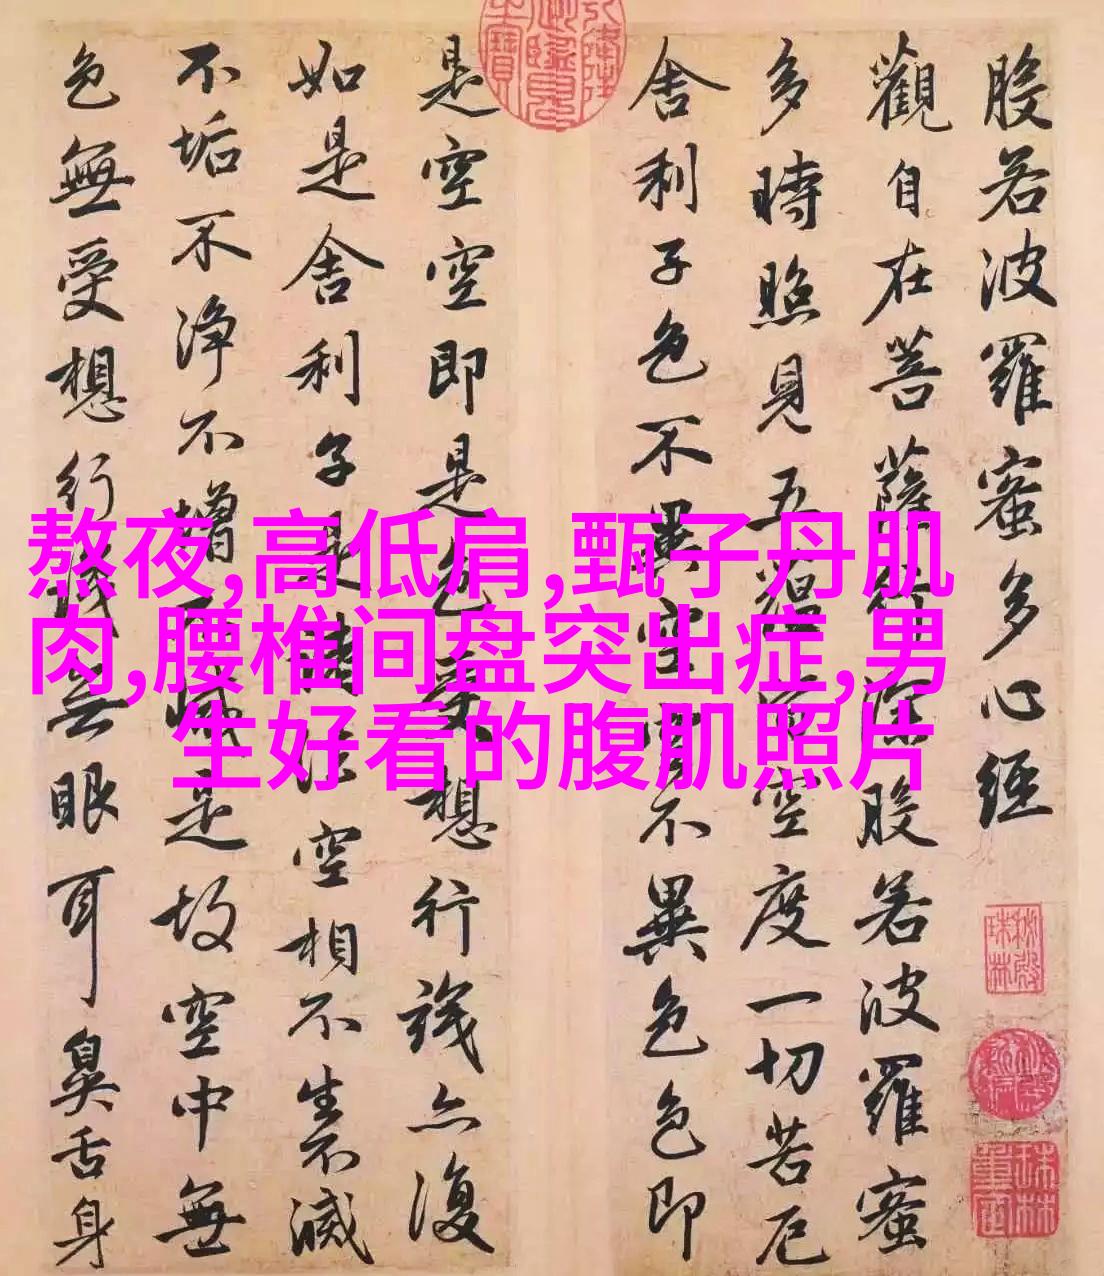 般若波羅蜜多心經
觀自在菩薩行深般若波羅蜜
多時照見五蘊皆空度一切苦厄
舍利子色不異空空不異色色即
是空空即是色受想行識亦復
如是舍利子是諸法空相不生不滅
不垢不净不增不減是故空中無
色無受想行識无眼耳鼻舌身
熬夜,高低肩,甄子丹肌
肉,腰椎间盘突出症,男
生好看的腹肌照片
秘殿珠林